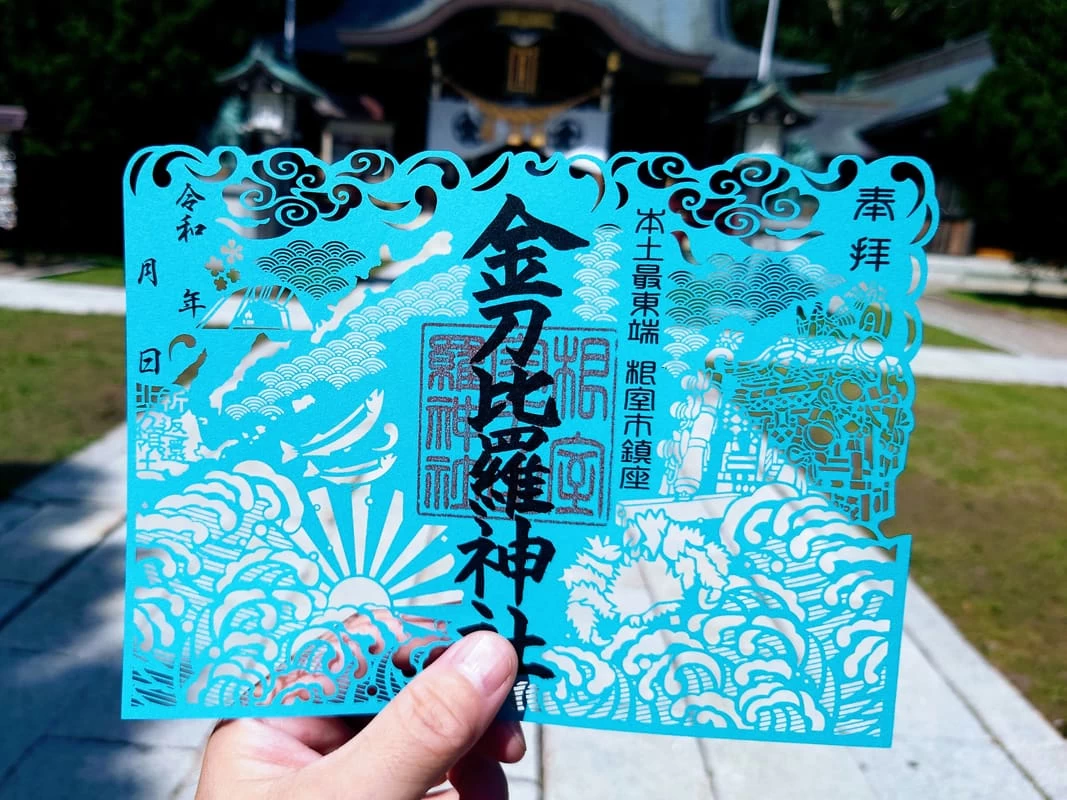 奉拝
本土最東端 根室市鎮座
金刀比羅神社
根室
羅神社
令和
年
月
日
祈